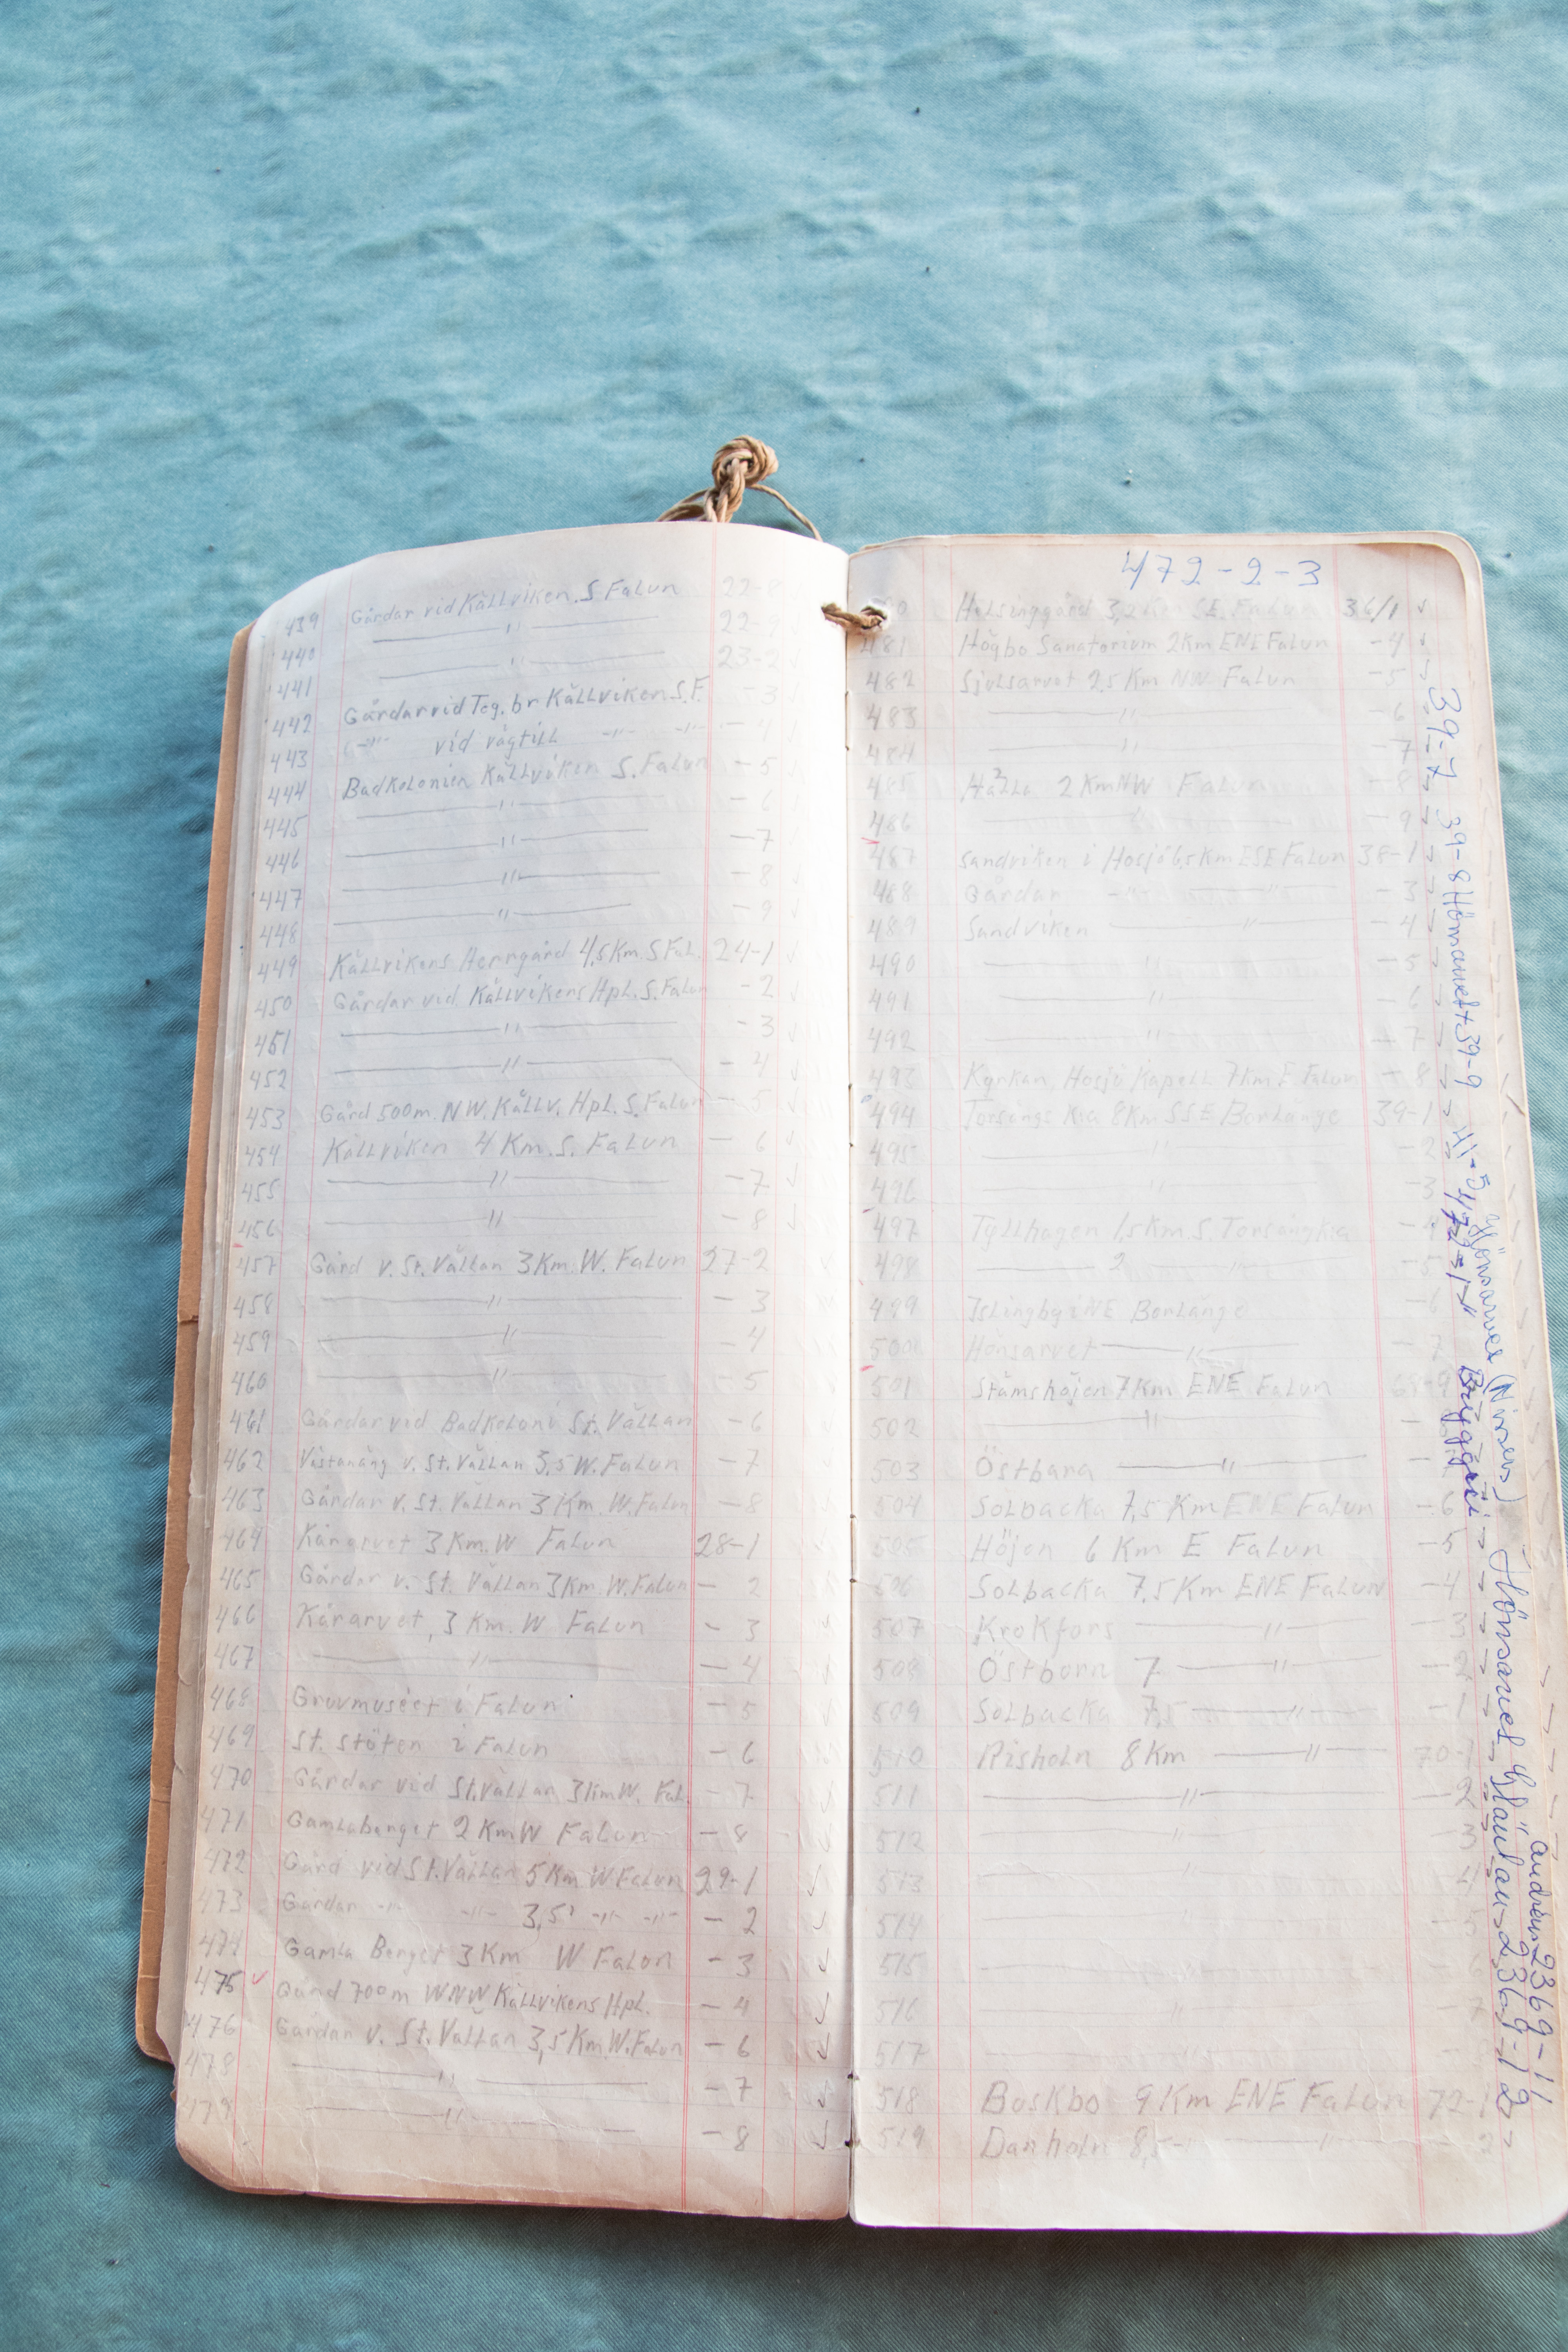 439 Gårdar vid Källviken. S Falun 22-8
440 —"— 22-9
441 —"— 23-2
442 Gårdar vid Teg. br Källviken S.F. -3
443 -"- vid vägtill -"- -"- -4
444 Badkolonien Källviken S. Falun -5
445 —"— -6
446 —"— -7
447 —"— -8
448 —"— -9
449 Källvikens Herrgård 4,5 Km. S Fal. 24-1
450 Gårdar vid Källvikens Hpl. S. Falun -2
451 —"— -3
452 —"— -4
453 Gård 500m. NW. Källv. Hpl. S. Falun -5
454 Källviken 4 Km. S. Falun -6
455 —"— -7
456 —"— -8
457 Gård v. St. Vällan 3 Km. W. Falun 27-2
458 —"— -3
459 —"— -4
460 —"— -5
461 Gårdar vid Badkoloni St. Vällan -6
462 Västanäng v. St. Vällan 3,5 W. Falun -7
463 Gårdar v. St. Vällan 3 Km. W. Falun -8
464 Kårarvet 3 Km. W Falun 28-1
465 Gårdar v. St. Vällan 3 Km. W. Falun - 2
466 Kårarvet, 3 Km. W Falun - 3
467 —"— -4
468 Gruvmuséet i Falun -5
469 St. Stöten i Falun -6
470 Gårdar vid St. Vällan 3 Km W. Fal. -7
471 Gamlaberget 2 Km W Falun -8
472 Gård vid St. Vällan 5 Km W Falun 29-1
473 Gårdar -"- -"- 3,5 -"- -"- - 2
474 Gamla Berget 3 Km W Falun - 3
475 Gård 700m WNW Källvikens Hpl. - 4
476 Gårdar v. St. Vällan 3,5 Km. W. Falun - 6
478 —"— -7
479 —"— -8
472-2-3
Helsinggård 3,2 Km SE. Falun 36/1
481 Högbo Sanatorium 2 Km ENE Falun -4
482 Sjulsarvet 2,5 Km NW Falun -5
483 —"— -6
484 —"— -7
485 Hälla 2 Km NW Falun -8
486 —"— -9
487 Sandviken i Hosjö 6,5 Km ESE Falun 38-1
488 Gårdar -"- —"— -3
489 Sandviken —"— -4
490 —"— -5
491 —"— -6
492 —"— -7
493 Kyrkan, Hosjö Kapell 7 Km E Falun -8
494 Torsångs Kra 8 Km SSE Borlänge 39-1
495 —"— -2
496 —"— -3
497 Tyllhagen 1,5 Km. S. Torsångkra -4
498 — 2 —"— -5
499 Islingby i NE Borlänge -6
500 Hönsarvet —"— -7
501 Stämshöjen 7 Km ENE Falun 69-9
502 —"—
503 Östbara —"—
504 Solbacka 7,5 Km ENE Falun -6
505 Höjen 6 Km E Falun -5
506 Solbacka 7,5 Km ENE Falun -4
507 Krokfors —"— -3
508 Östborn 7 —"— -2
509 Solbacka 7,5 —"— -1
510 Risholn 8 Km —"— 70-1
511 —"— -2
512 —"— -3
513 —"— 4
514 -5
515 —"—
516 —"— -7
517
518 Boskbo 9 Km ENE Falun 72-1
519 Danholn 8,5 —"— 2
39-7 39-8 39-9 41-5
472-1 Bryggeri
Hönsarvet 2369-12
2369-11